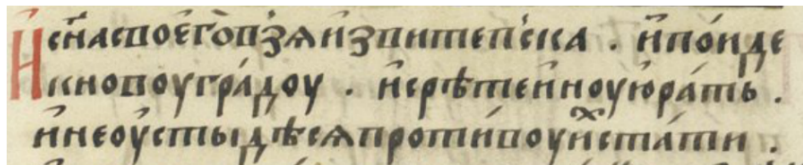 И сн҃а своего̀ пѡзѧ и́з вите́пьска . и҆ по́иде
к новоу гра́доу . и҆ срѣте и҆ ноу и҆ ра́ть .
и҆ не оу҆стыдѣсѧ проти́воу и҆́хъ ста́ти .